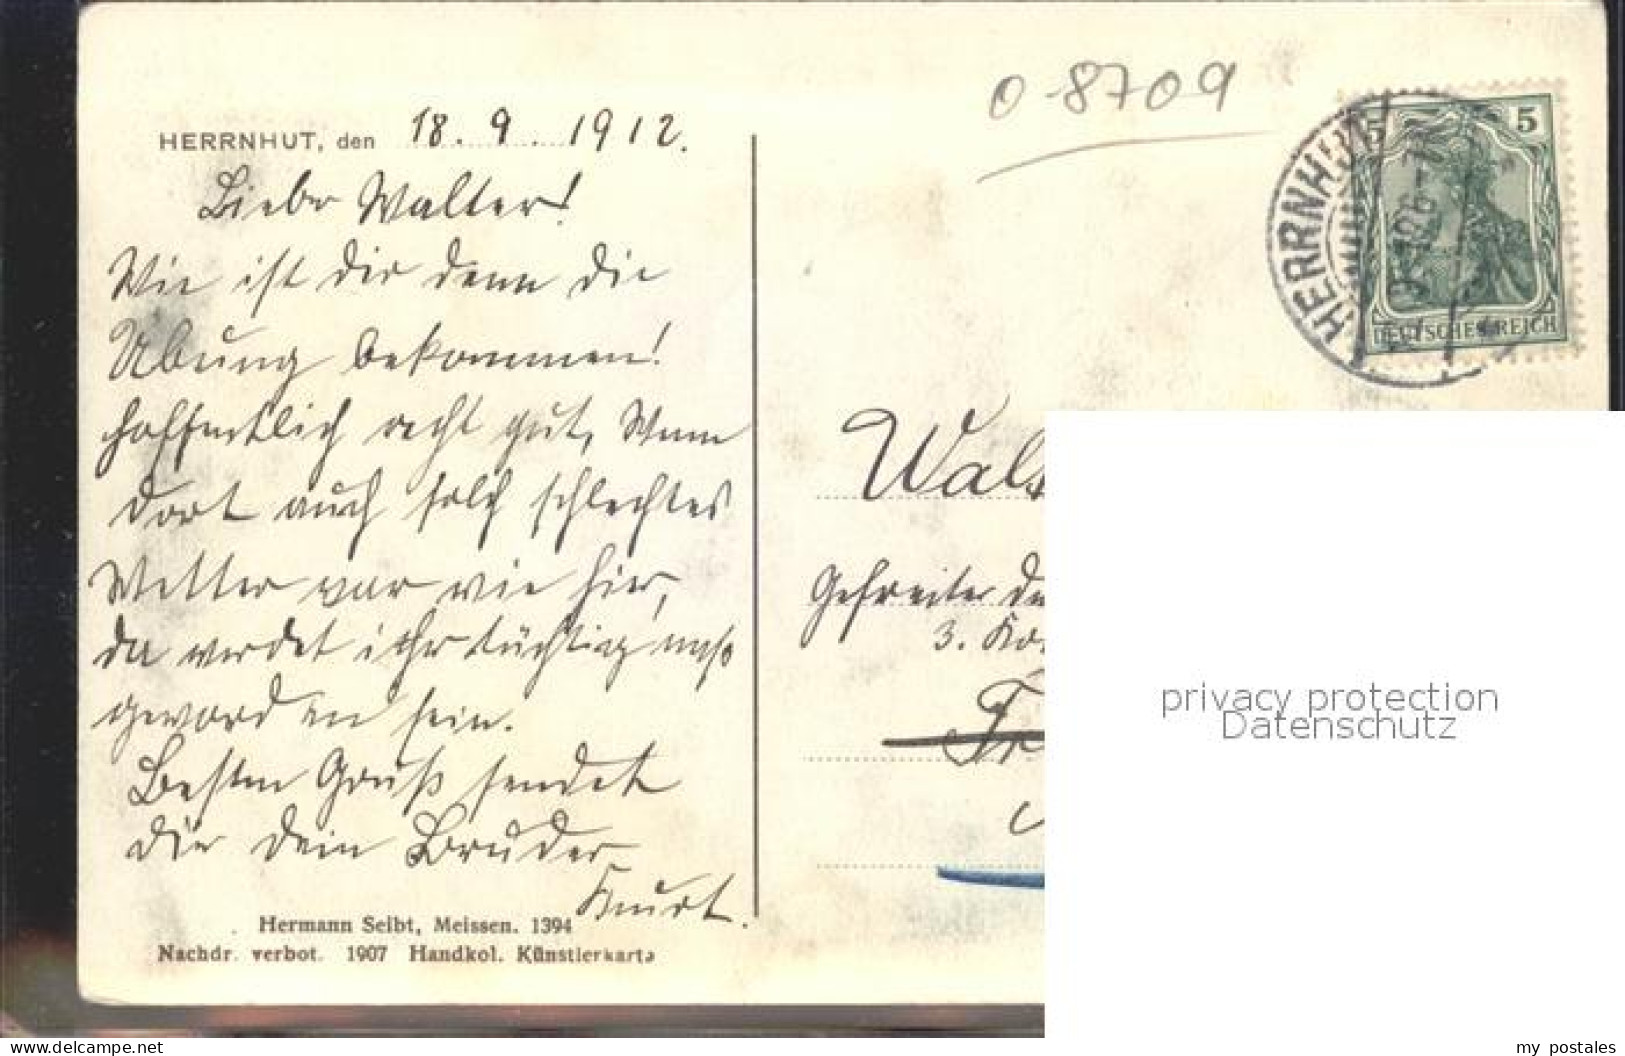 o 8709
HERRNHUT, den 18. 9. 1912.
Lieber Walter!
Wie ist dir denn die
Übung bekommen!
hoffentlich recht gut, Wenn
dort auch solch schlechtes
Wetter war wie hier,
da werdet ihr tüchtig naß
geworden sein.
Besten Gruß sendet
dir dein Bruder
Kurt.
Hermann Seibt, Meissen. 1394
Nachdr. verbot. 1907 Handkol. Künstlerkarte
5 5
DEUTSCHES REICH
HERRNHUT
Gefreiter
3.
privacy protection
Datenschutz
the-best-of-local.com
my postales